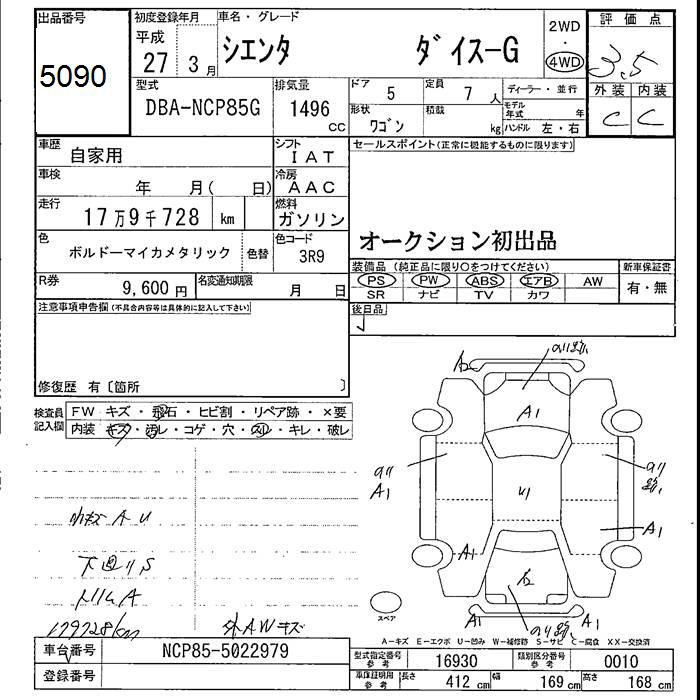 出品番号
5090
初度登録年月
平成
27 3月
車名・グレード
シエンタ ダイス-G
2WD
・
4WD
評価点
3.5
外装 内装
C C
型式
DBA-NCP85G
排気量
1496
CC
ドア 5
定員 7 人
形状 ワゴン
積載 kg
ディーラー・並行
モデル年式 年
ハンドル 左・右
車歴
自家用
シフト
IAT
車検
年 月( 日)
冷房
AAC
走行
17万9千728 km
燃料
ガソリン
色
ボルドーマイカメタリック
色替
色コード
3R9
R券
9,600円
名変通知期限
月 日
セールスポイント(正常に機能するものに限ります)
オークション初出品
装備品(純正品に限り○をつけてください)
PS PW ABS エアB AW
SR ナビ TV カワ
新車保証書
有・無
後日品
注意事項申告欄(不具合内容等は具体的に記入して下さい)
修復歴 有〔箇所 〕
検査員
記入欄
FW キズ・飛石・ヒビ割・リペア跡・×要
内装 キズ・汚レ・コゲ・穴・スレ・キレ・破レ
小キズ A U
下回リ S
トリムA
179728km
外AWキズ
A2
A1
A1
A1
U1
A1
A1
A1
スペア
A-キズ E-エクボ U-凹み W-補修跡 S-サビ C-腐食 XX-交換済
車台番号
NCP85-5022979
登録番号
型式指定番号
参考
16930
類別区分番号
参考
0010
車庫証明用
参考
長さ 412 cm
幅 169 cm
高さ 168 cm